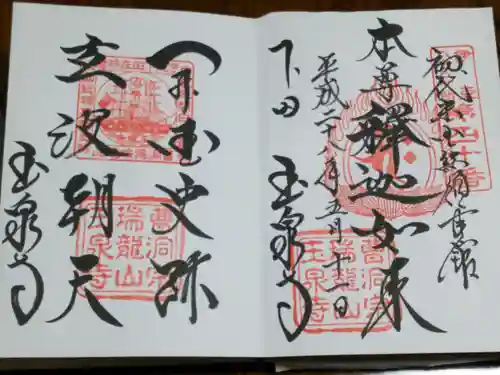 初代米国総領事館
本尊釋迦如来
平成二十八年五月十一日
下田 玉泉寺
曹洞宗
瑞龍山
玉泉寺
開国史跡
波朝天
玉泉寺
曹洞宗
瑞龍山
玉泉寺